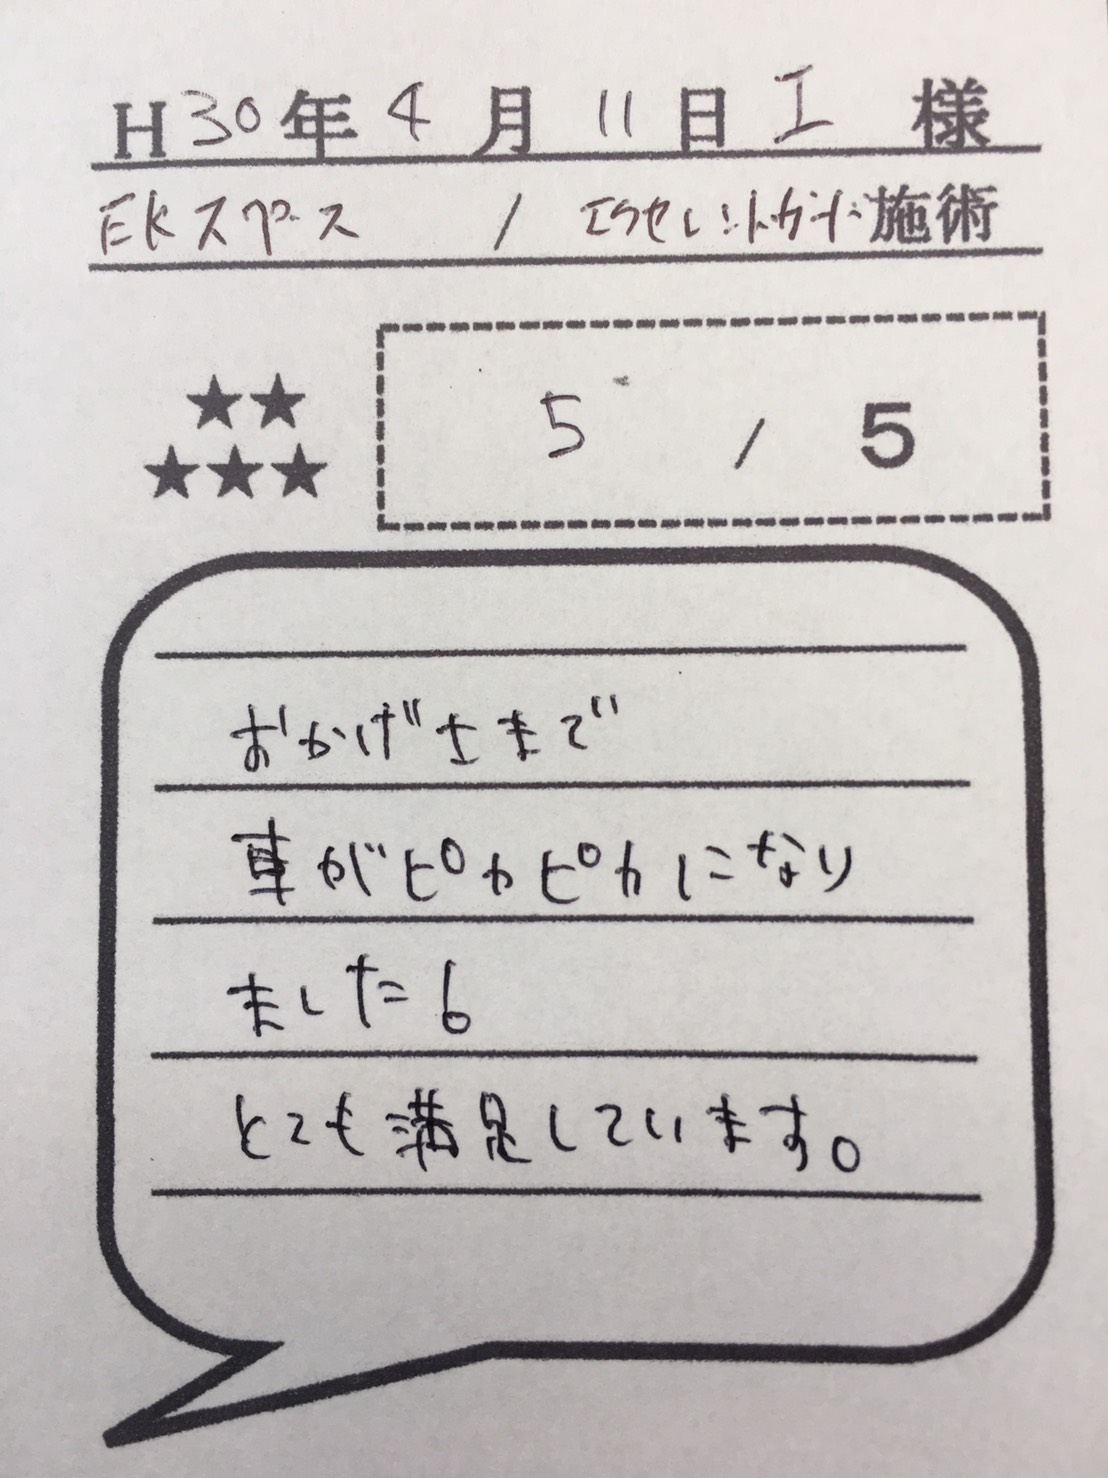 H30年4月11日 I 様
EKスペース / エクセレントガード施術
★★
★★★
5 / 5
おかげさまで
車がピカピカになり
ました!
とても満足しています。